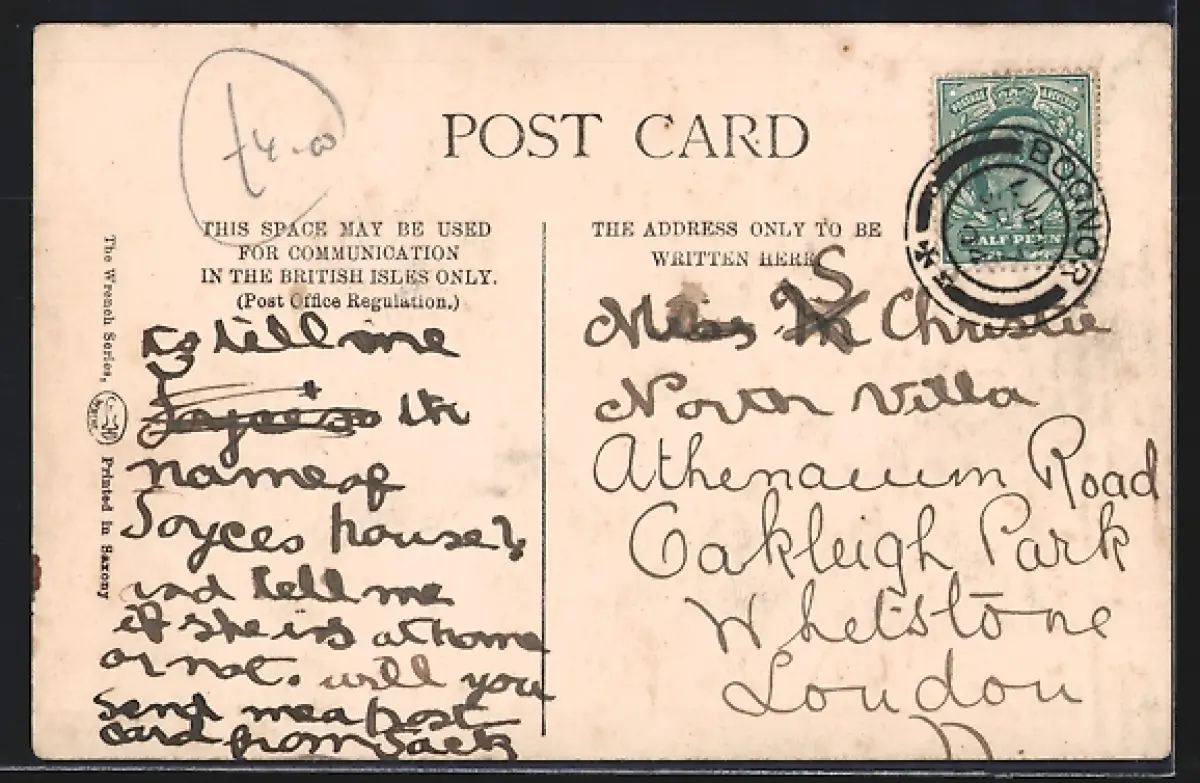 £4.00
POST CARD
THIS SPACE MAY BE USED
FOR COMMUNICATION
IN THE BRITISH ISLES ONLY.
(Post Office Regulation.)
THE ADDRESS ONLY TO BE
WRITTEN HERE
HALF PENNY
BOGNOR
The Wrench Series,
Printed in Saxony
to tell me
the
name of
Joyces house?
and tell me
if she is at home
or not. will you
send me a post
card from Jack
Miss S Christie
North Villa
Athenaeum Road
Oakleigh Park
Whetstone
London
N